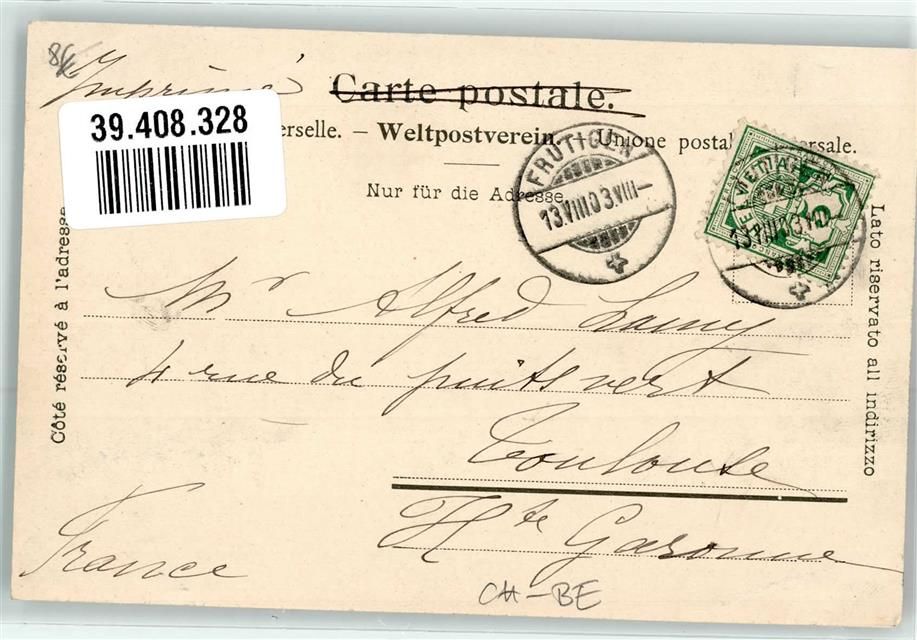 8/-
Imprimé
Carte postale.
39.408.328
erselle. – Weltpostverein. – Unione postale universale.
Nur für die Adresse.
FRUTIGEN
13.VIII.03.VIII–
HELVETIA
5
13.VIII.03.VIII–
Côté réservé à l'adresse
Lato riservato all indirizzo
Mr Alfred Lamy
4 rue du puits vert
Toulouse
Hte Garonne
France
CH-BE